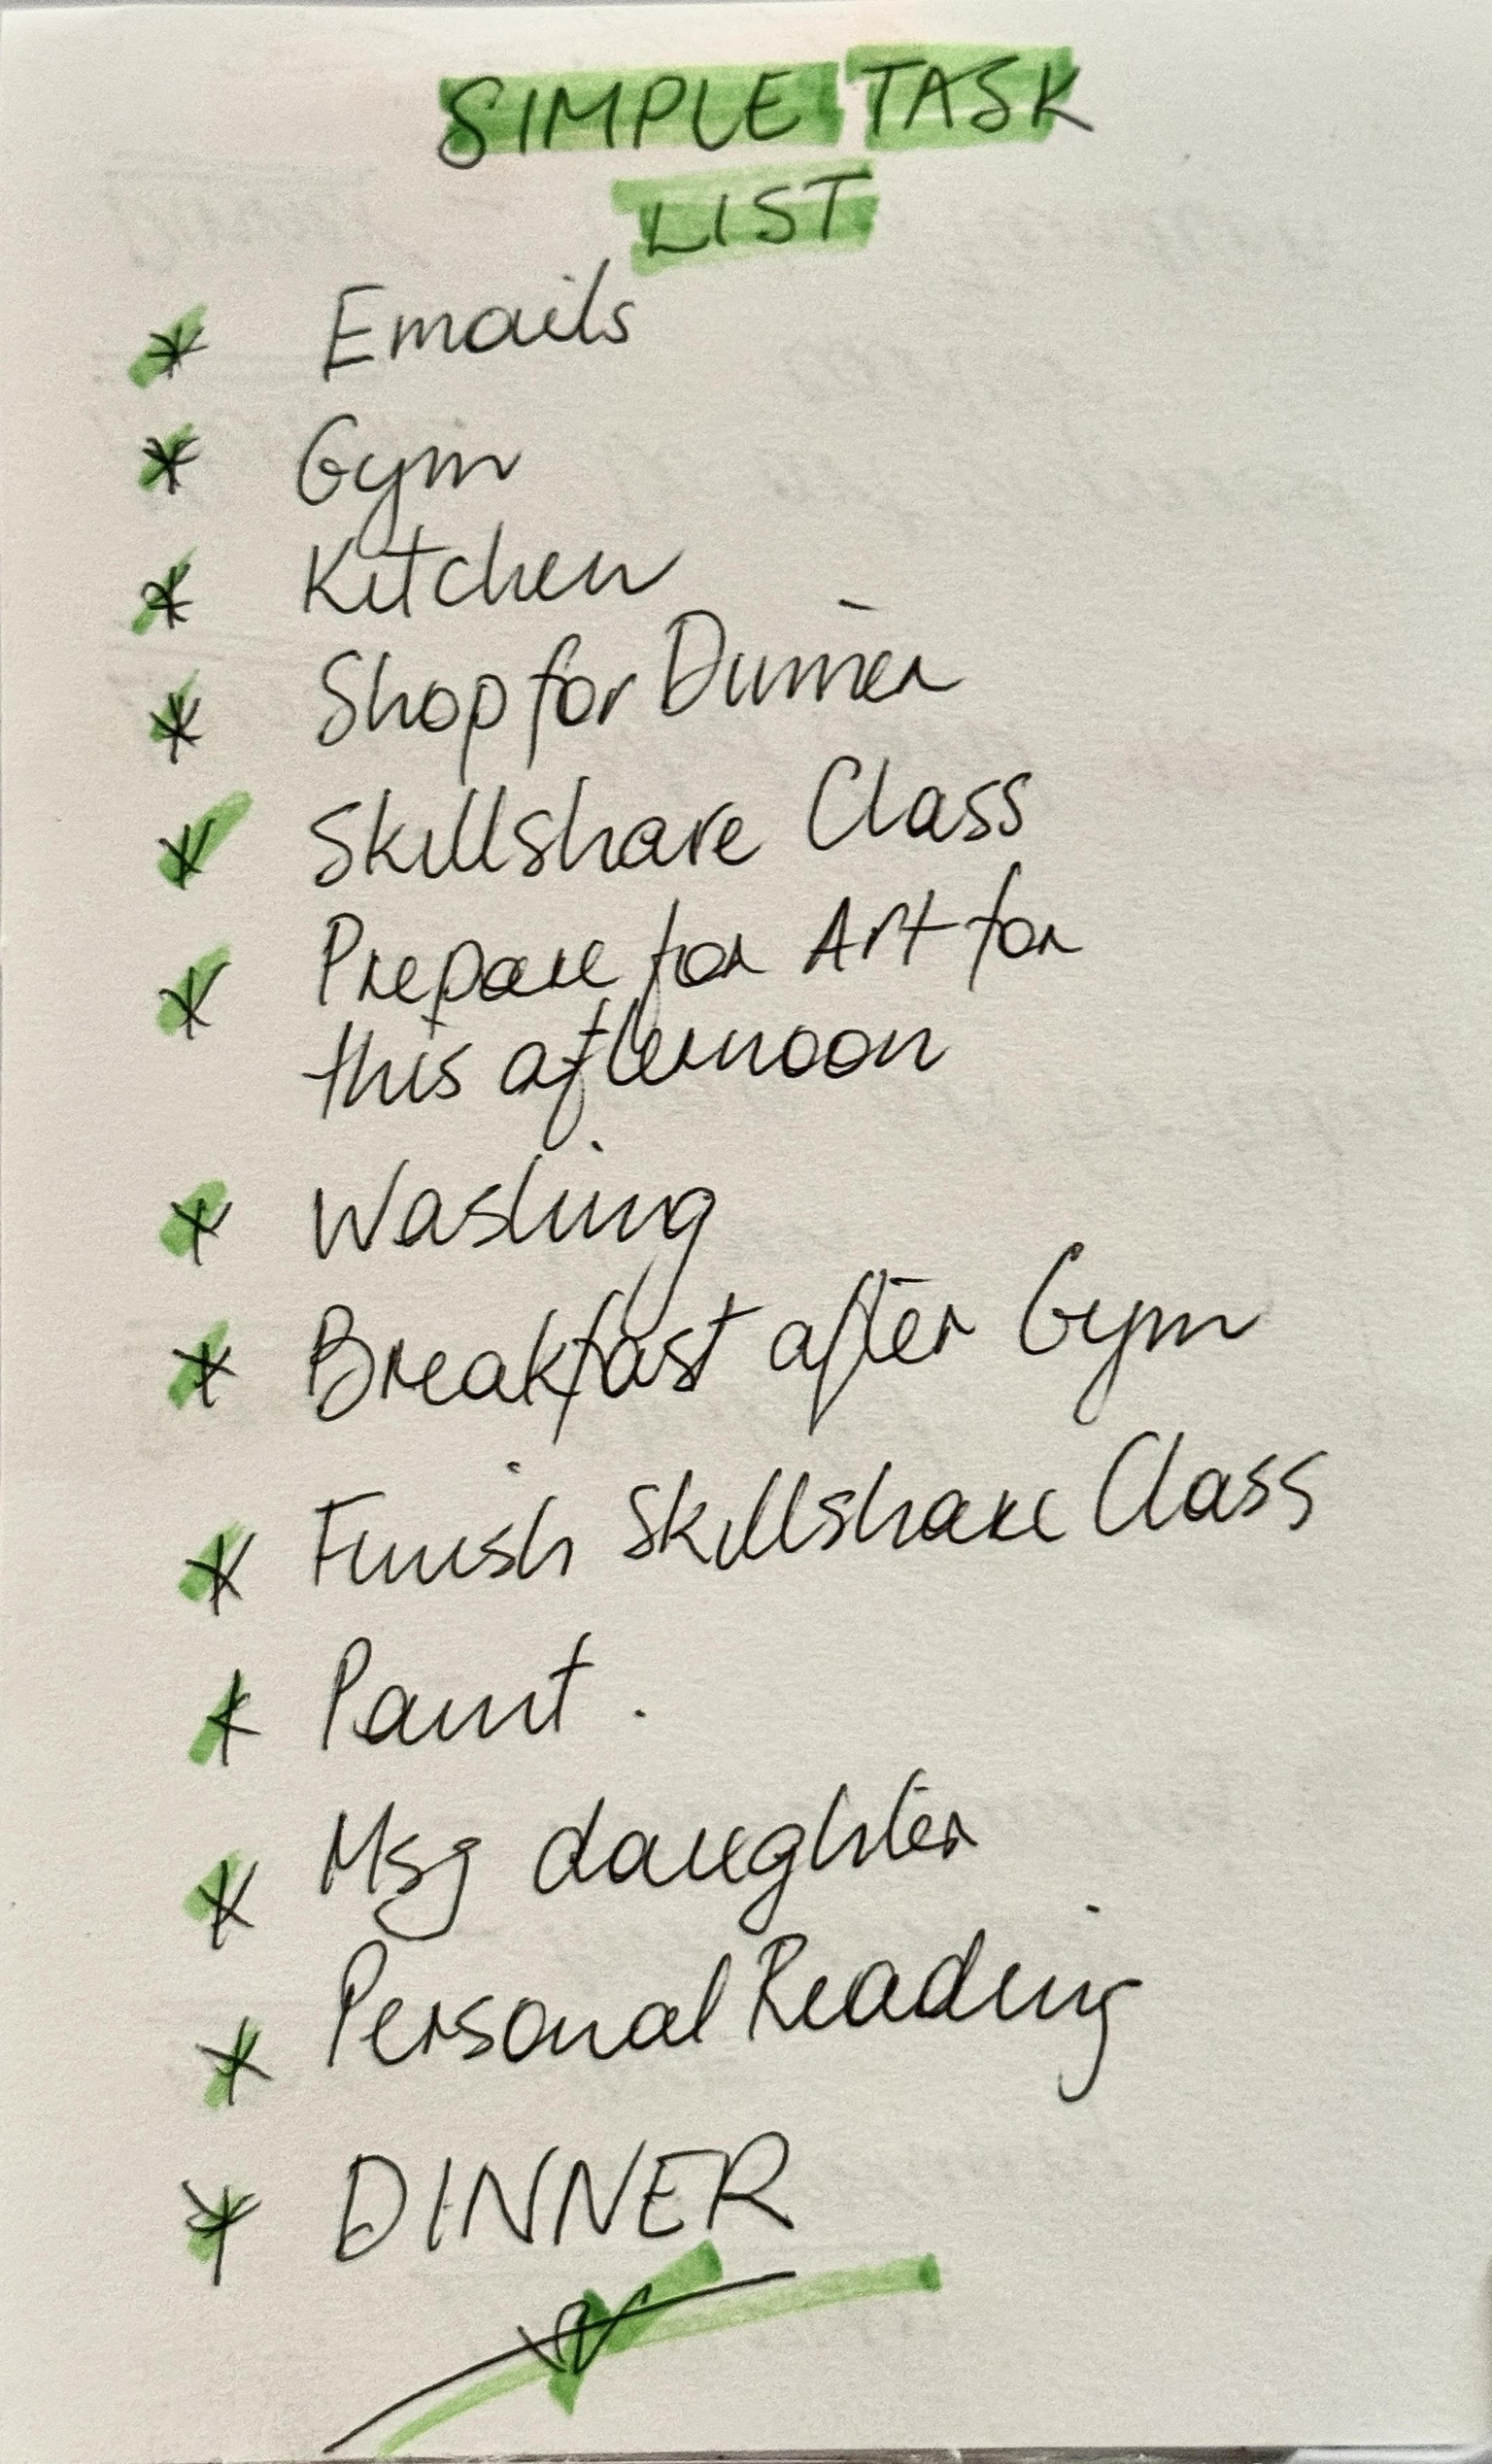 SIMPLE TASK
LIST
* Emails
* Gym
* Kitchen
* Shop for Dinner
* Skillshare Class
* Prepare for Art for
this afternoon
* Washing
* Breakfast after Gym
* Finish Skillshare Class
* Paint.
* Msg daughter
* Personal Reading
* DINNER